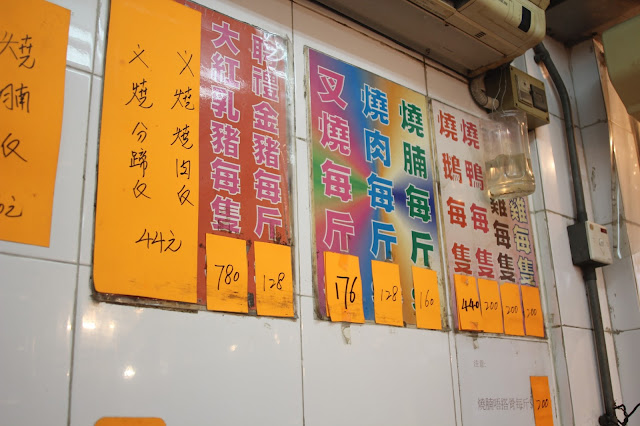 燒腩仅
叉燒燒肉仅
叉燒分蹄仅
44元
聘禮金豬每斤
128
大紅乳豬每隻
780
燒腩每斤
160
燒肉每斤
128
叉燒每斤
176
雞每隻
200
雞每隻
200
燒鴨每隻
200
燒鵝每隻
440
燒腩唔搭每斤
200